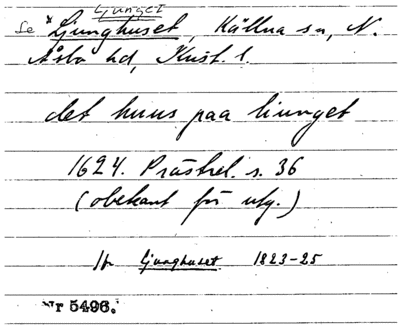 Ljunget
Se *Ljunghuset, Källna sn, N.
Åsbo hd, Krist. l.
det huus paa liunget
1624. Prästrel. s. 36
(obekant för utg.)
Jfr Ljunghuset 1823-25
Nr 5496.